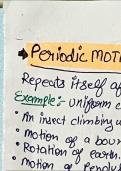 Periodic MOT
Repeats itself af
Example:- Uniform c
• An insect climbing u
• motion of a boun
• Rotation of earth.
• motion of Pendul